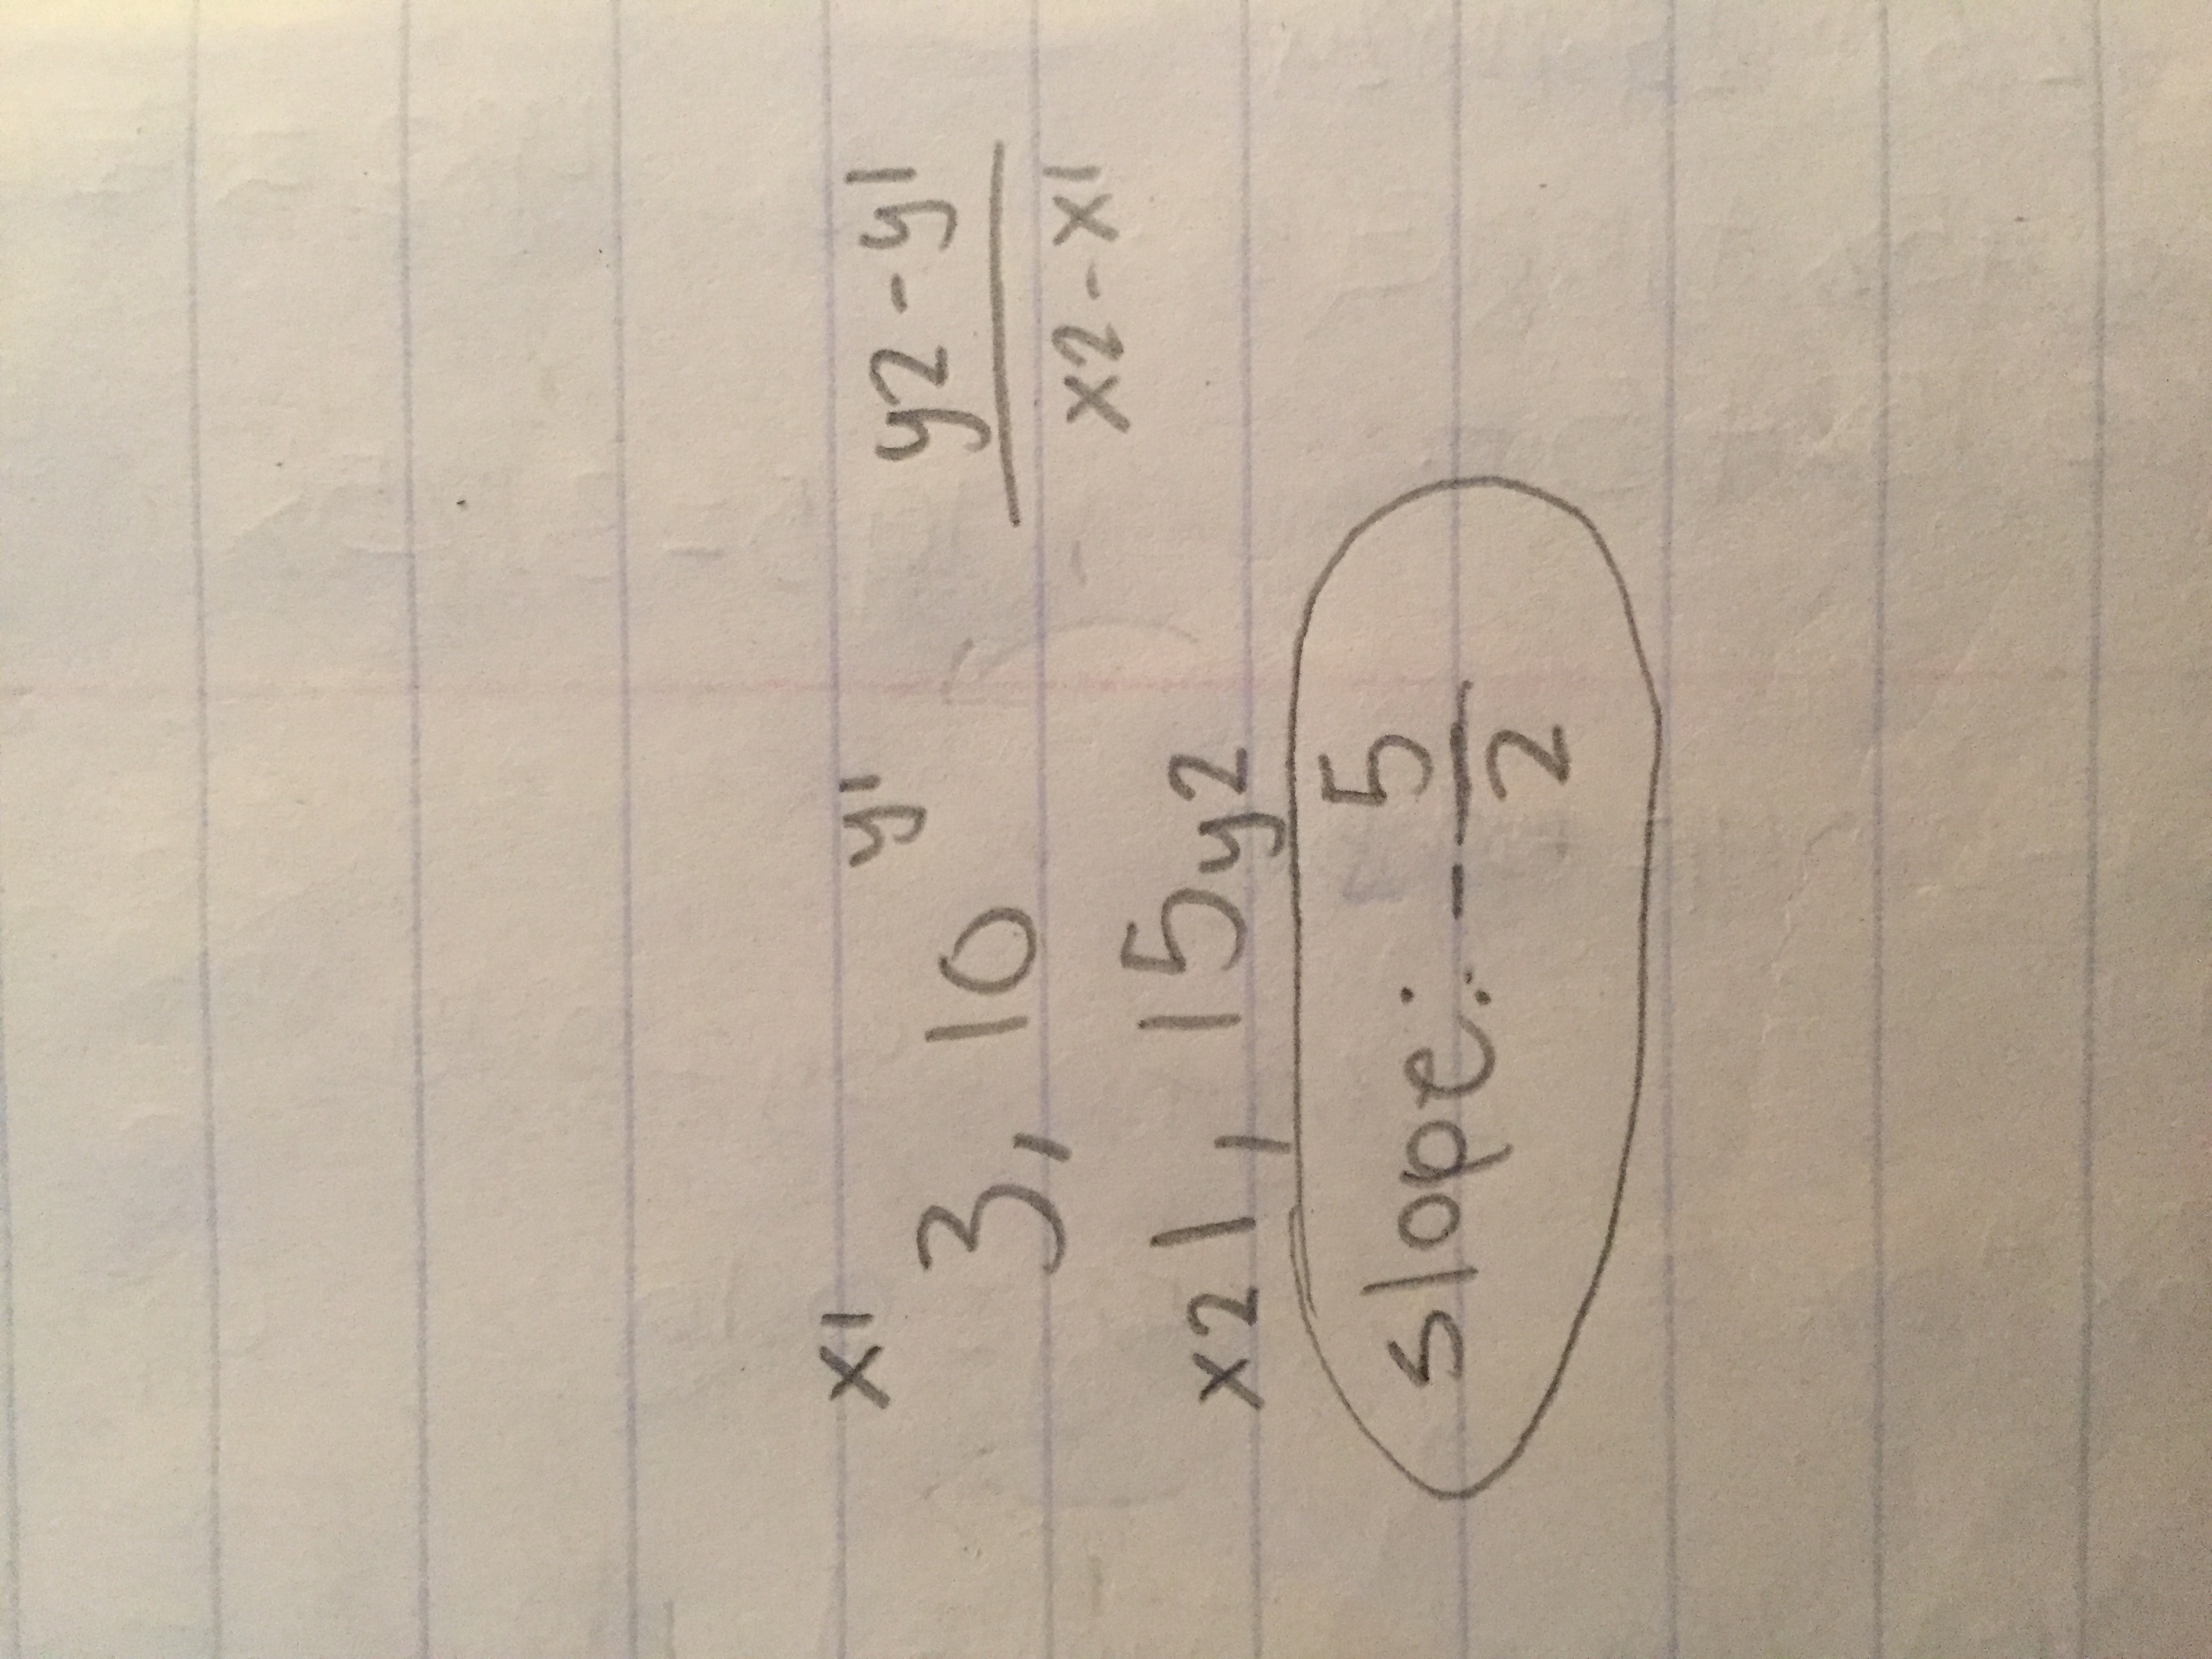 x1 y1
3, 10
x2 1, 15 y2
y2 - y1
x2 - x1
slope: - 5
2